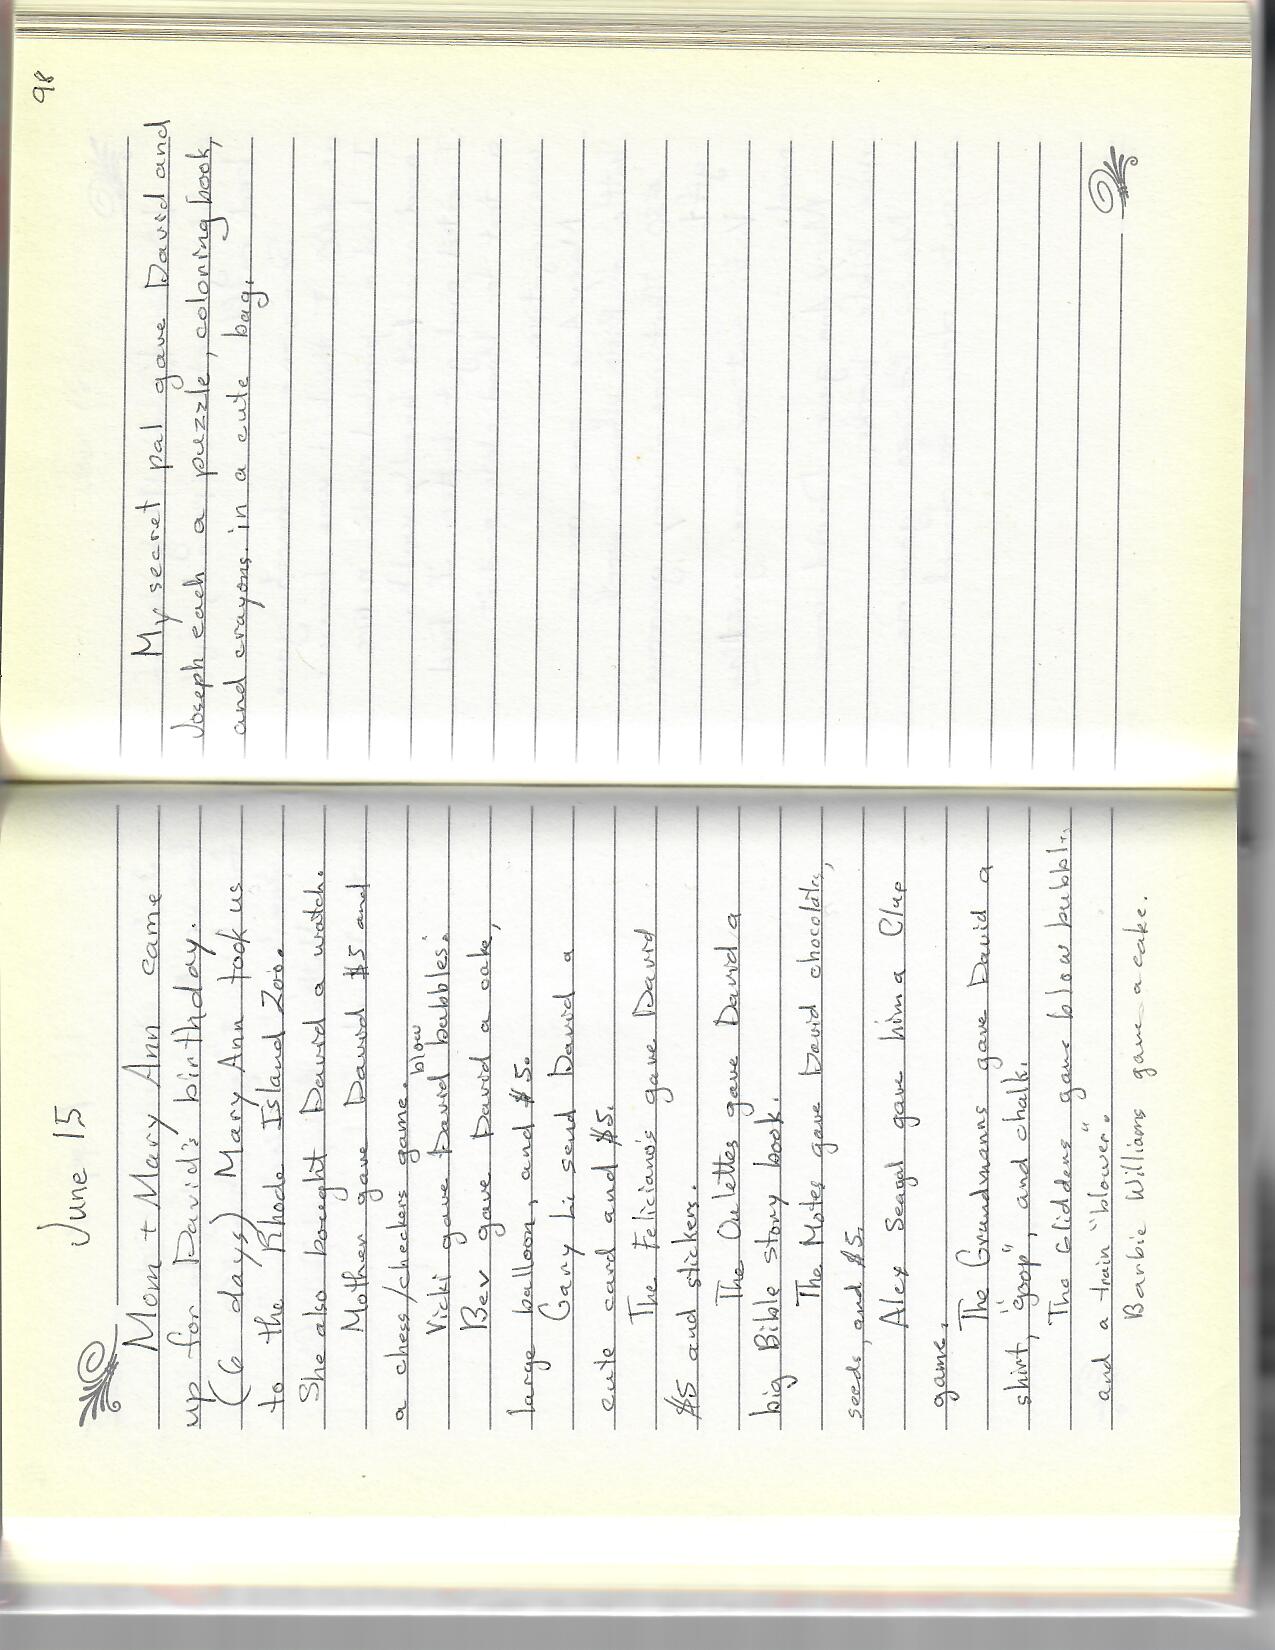 June 15
Mom + Mary Ann came
up for David's birthday.
(6 days) Mary Ann took us
to the Rhode Island Zoo.
She also bought David a watch.
Mother gave David $5 and
a chess/checkers game.
Vicki gave David blow bubbles.
Bev gave David a cake,
large balloon, and $5.
Gary Li send David a
cute card and $5.
The Feliciano's gave David
$5 and stickers.
The Oulettes gave David a
big Bible story book.
The Motes gave David chocolates,
seeds, and $5.
Alex Seagal gave him a Clue
game.
The Grundmanns gave David a
shirt, "goop", and chalk.
The Gliddens gave blow bubbles
and a train "blower."
Barbie Williams gave a cake.
98
My secret pal gave David and
Joseph each a puzzle, coloring book,
and crayons in a cute bag.